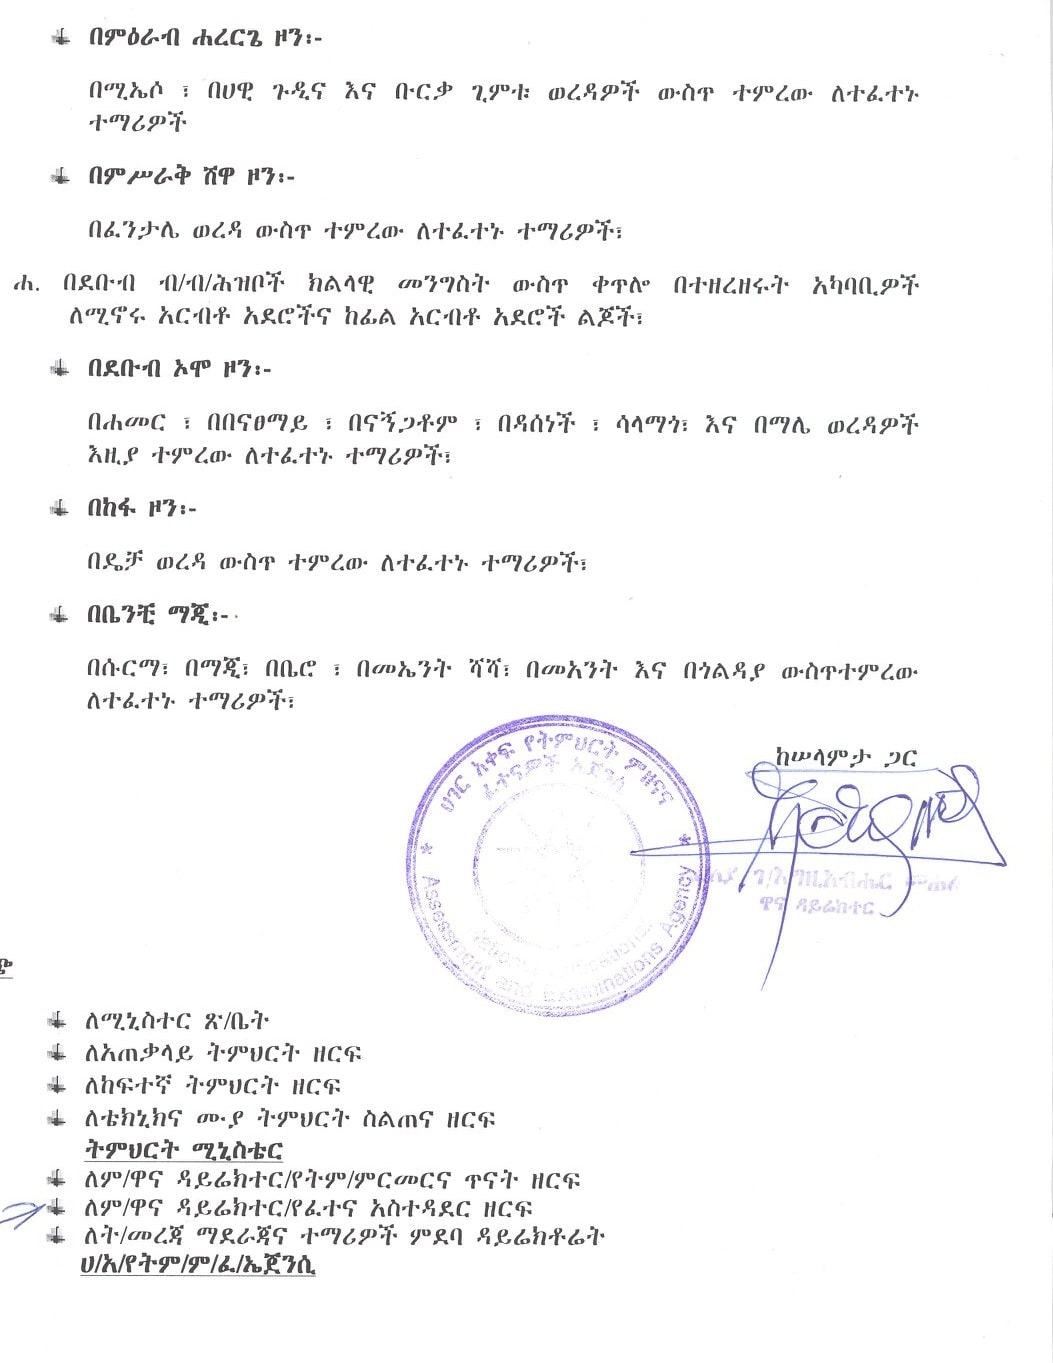 በምዕራብ ሐረርጌ ዞን፡-
በሚኤሶ ፣ በሀዊ ጉዲና እና ቡርቃ ጊምቱ ወረዳዎች ውስጥ ተምረው ለተፈተኑ
ተማሪዎች
በምሥራቅ ሸዋ ዞን፡-
በፈንታሌ ወረዳ ውስጥ ተምረው ለተፈተኑ ተማሪዎች፣
ሐ. በደቡብ ብ/ብ/ሕዝቦች ክልላዊ መንግስት ውስጥ ቀጥሎ በተዘረዘሩት አካባቢዎች
ለሚኖሩ አርብቶ አደሮችና ከፊል አርብቶ አደሮች ልጆች፣
በደቡብ ኦሞ ዞን፡-
በሐመር ፣ በበናፀማይ ፣ በናኝጋቶም ፣ በዳሰነች ፣ ሳላማጎ፣ እና በማሌ ወረዳዎች
እዚያ ተምረው ለተፈተኑ ተማሪዎች፣
በከፋ ዞን፡-
በዴቻ ወረዳ ውስጥ ተምረው ለተፈተኑ ተማሪዎች፣
በቤንቺ ማጂ፡-
በሱርማ፣ በማጂ፣ በቤሮ ፣ በመኤንት ሻሻ፣ በመአንት እና በጎልዳያ ውስጥተምረው
ለተፈተኑ ተማሪዎች፣
ከሠላምታ ጋር
ሀገር አቀፍ የትምህርት ምዘናና
ፈተናዎች ኤጀንሲ
Assessment and Examinations Agency
ዋና ዳይሬክተር
ለሚኒስተር ጽ/ቤት
ለአጠቃላይ ትምህርት ዘርፍ
ለከፍተኛ ትምህርት ዘርፍ
ለቴክኒክና ሙያ ትምህርት ስልጠና ዘርፍ
ትምህርት ሚኒስቴር
ለም/ዋና ዳይሬክተር/የትም/ምርመርና ጥናት ዘርፍ
ለም/ዋና ዳይሬክተር/የፈተና አስተዳደር ዘርፍ
ለት/መረጃ ማደራጃና ተማሪዎች ምደባ ዳይሬክቶሬት
ሀ/አ/የትም/ም/ፈ/ኤጀንሲ